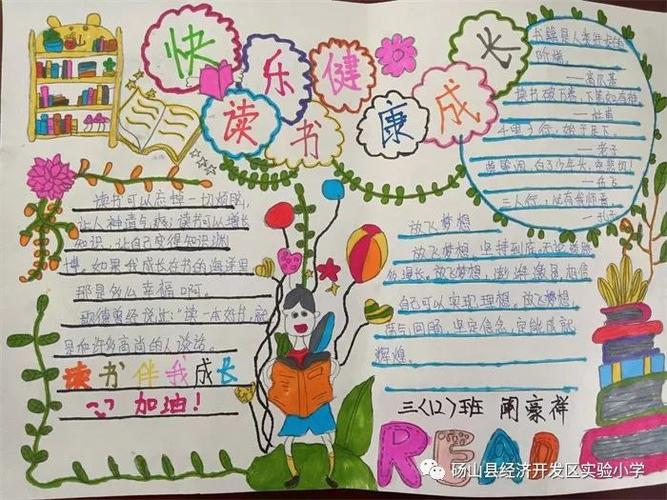 快乐健康成长
读书
书籍是人类进步的
阶梯。
——高尔基
读书破万卷，下笔如有神。
——杜甫
千里之行，始于足下。
——老子
莫等闲，白了少年头，空悲切！
——岳飞
三人行，必有我师焉。
——孔子
读书可以忘掉一切烦恼，
让人神清气爽；读书可以增长
知识，让自己变得知识渊
博。如果我成长在书的海洋里
那是多么幸福啊。
歌德曾经说过："读一本好书，就
是和许多高尚的人谈话。
读书伴我成长
加油！
放飞梦想
放飞梦想，坚持到底，
放飞梦想，相信
自己可以实现理想。放飞梦想
坚定信念，定能成就
辉煌。
三〈12〉班 阚豪祥
READ
砀山县经济开发区实验小学